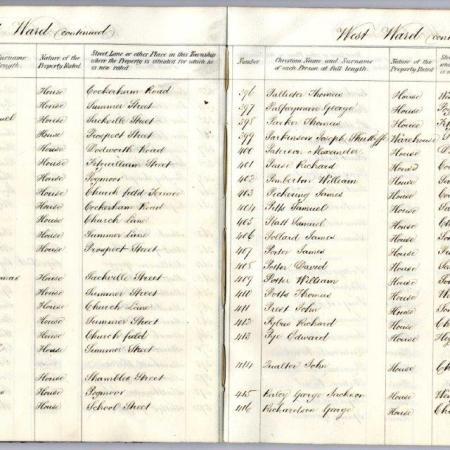 Ward (continued)
Surname
length.
Nature of the
Property Rated.
Street, Lane or other Place in this Township
where the Property is situated for which he
is now rated.
House Cockerham Road
House Summer Street
House Sackville Street
House Prospect Street
House Dodworth Road
House Fitzwilliam Street
House Pogmoor
House Church field Terrace
House Cockerham Road
House Church Lane
House Summer Lane
House Prospect Street
House Sackville Street
House Summer Street
House Church Lane
House Summer Street
House Church field
House Summer Street
House Shambles Street
House Pogmoor
House School Street
West Ward (con
Number
Christian Name and Surname
of each Person at full length.
Nature of the
Property Rated.
396 Pallister Thomas House
397 Palfreyman George House
398 Parker Thomas House
399 Parkinson Joseph Warehouse
400 Paterson Alexander House
401 Pease Richard House
402 Pemberton William House
403 Pickering James House
404 Potts Samuel House
405 Platt Samuel House
406 Pollard James House
407 Porter James House
408 Potter David House
409 Potter William House
410 Potts Thomas House
411 Priest John House
412 Pybus Richard House
413 Pye Edward House
414 Qualter John House
415 Raley George Jackson House
416 Richardson George House